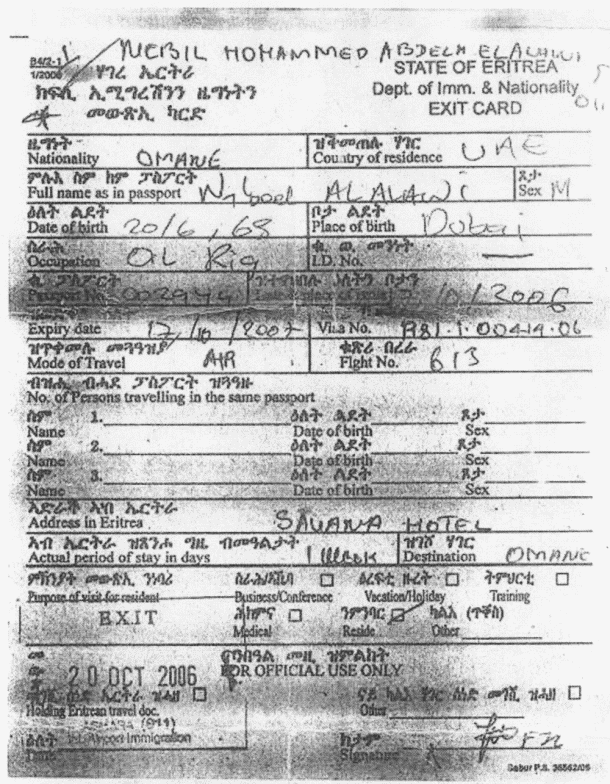 NEBIL MOHAMMED ABDELA ELALAWI
B4/2-1
1/2006
ሃገረ ኤርትራ
STATE OF ERITREA
ክፍሊ ኢሚግረሽንን ዜግነትን
Dept. of Imm. & Nationality
መውጽኢ ካርድ
EXIT CARD
ዜግነት
Nationality OMANE
ዝቅመጠሉ ሃገር
Country of residence UAE
ምሉእ ስም ከም ፓስፖርት
Full name as in passport ALALAWI
ጾታ
Sex M
ዕለት ልደት
Date of birth 20/6, 68
ቦታ ልደት
Place of birth Dubai
ስራሕ
Occupation OIL Rig
ቁ. ወ. መንነት
I.D. No. —
ቁ. ፓስፖርት
Passport No.
2006
Expiry date 17/10/2007
Visa No.
ዝጥቀመሉ መጓዓዝያ
Mode of Travel AIR
ቁጽሪ በረራ
Flght No. 613
ብዝሒ ብሓደ ፓስፖርት ዝጓዓዙ
No. of Persons travelling in the same passport
ስም 1. ዕለት ልደት ጾታ
Name Date of birth Sex
ስም 2. ዕለት ልደት ጾታ
Name Date of birth Sex
ስም 3. ዕለት ልደት ጾታ
Name Date of birth Sex
ኣድራሻ ኣብ ኤርትራ
Address in Eritrea SAVANA HOTEL
ኣብ ኤርትራ ዝጸንሖ ግዜ ብመዓልታት
Actual period of stay in days 1 Week
ዝገሾ ሃገር
Destination OMANE
ምኽንያት መውጽኢ ንነባሪ
Purpose of visit for resident
Business/Conference
ዕረፍቲ ዙረት
Vacation/Holiday
ትምህርቲ
Training
EXIT
ሕክምና
Medical
ንምንባር
Reside
ካልእ (ጥቐስ)
Other
ንወግዓዊ መዚ ዝምልከት
FOR OFFICIAL USE ONLY
20 OCT 2006
Holding Eritrean travel doc.
Other
Airport Immigration
ዕለት
Date
ክታም
Signature
Sabur P.S. 36562/05